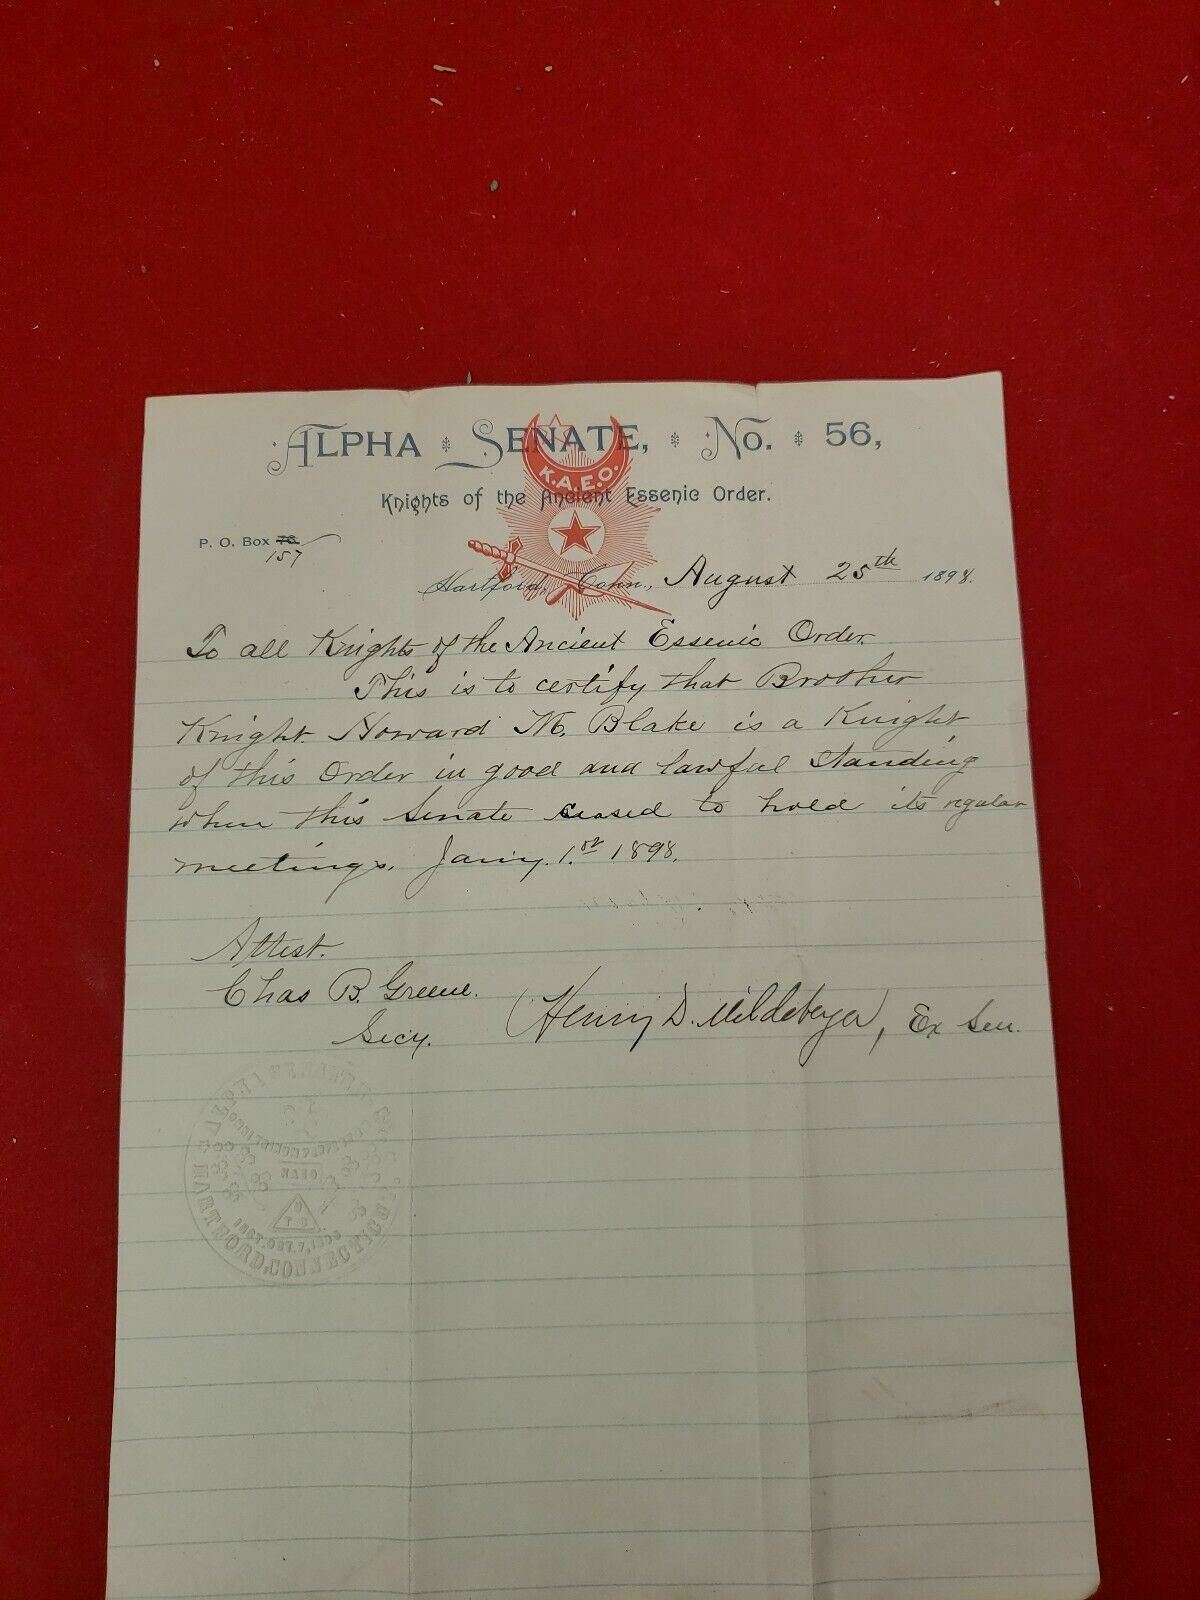 ALPHA SENATE, No. 56,
K.A.E.O.
Knights of the Ancient Essenic Order.
P. O. Box 76
157
Hartford, Conn., August 25th 1898.
To all Knights of the Ancient Essenic Order.
This is to certify that Brother
Knight Howard M. Blake is a Knight
of this Order in good and lawful standing
when this Senate ceased to hold its regular
meetings. Jany. 1.st 1898.
Attest.
Chas B. Greene.
Secy.
Henry D. Mildeberger, Ex Sen.
ALPHA SENATE
KAEO
INST. OCT. 7, 
HARTFORD, CONNECTICUT